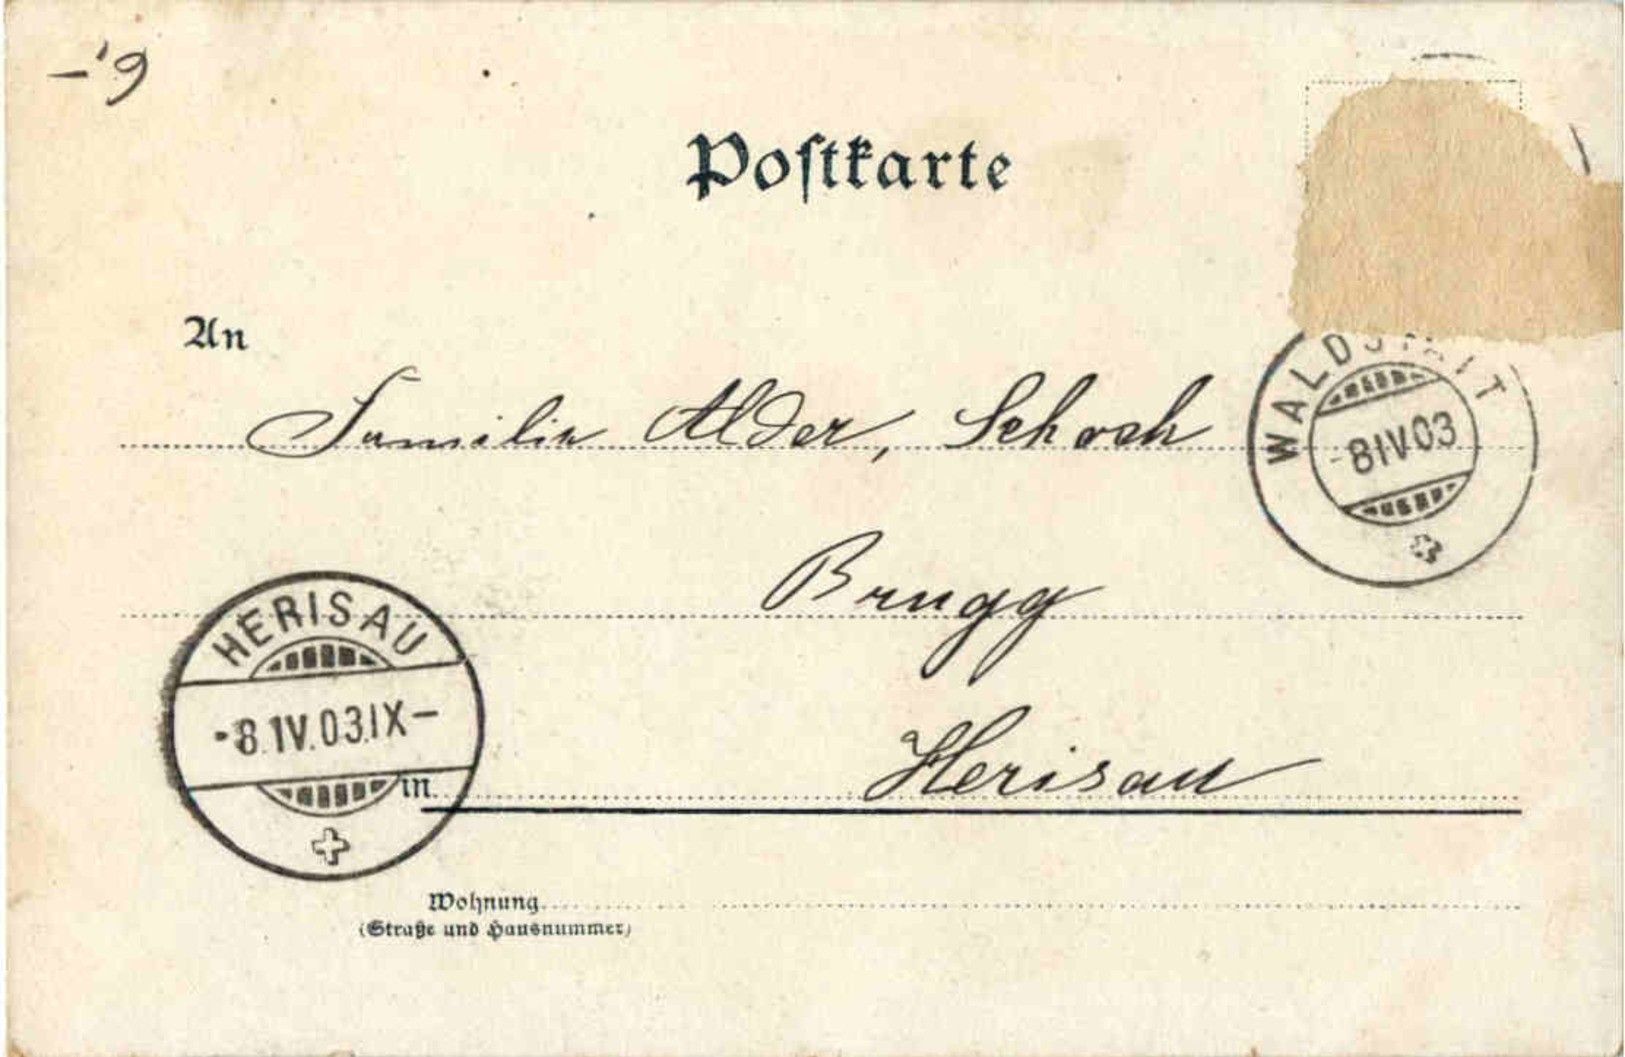 -'9
Postkarte
An
WALDSTATT
-8 IV 03
Familie Alder, Schoch
Brugg
HERISAU
-8.IV.03.IX-
in Herisau
Wohnung
(Straße und Hausnummer)